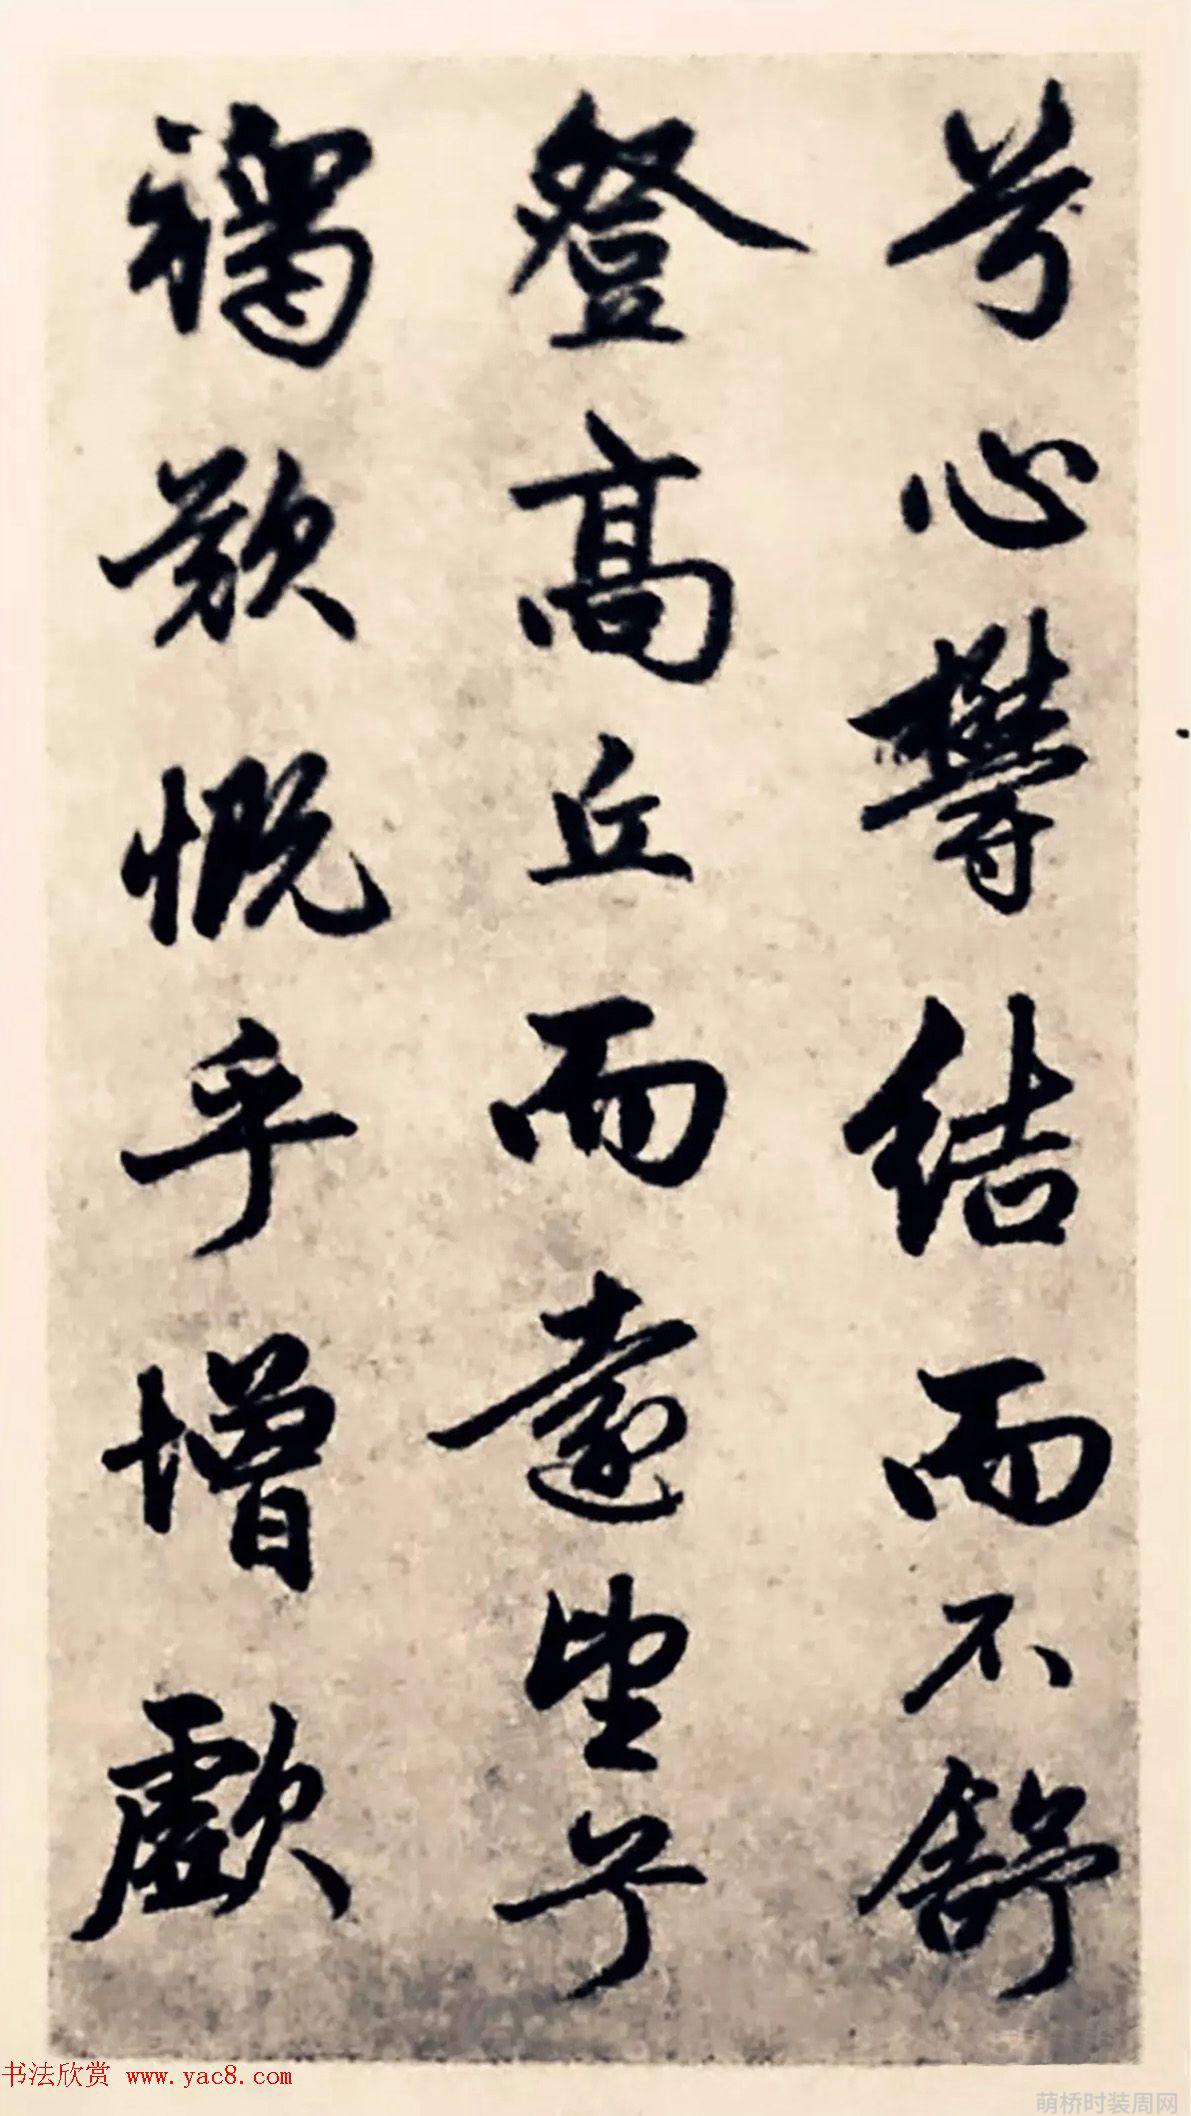 兮心欝结而不舒
登高丘而遠望兮
褐欵慨乎增歔
书法欣赏 www.yac8.com
萌桥时装周网